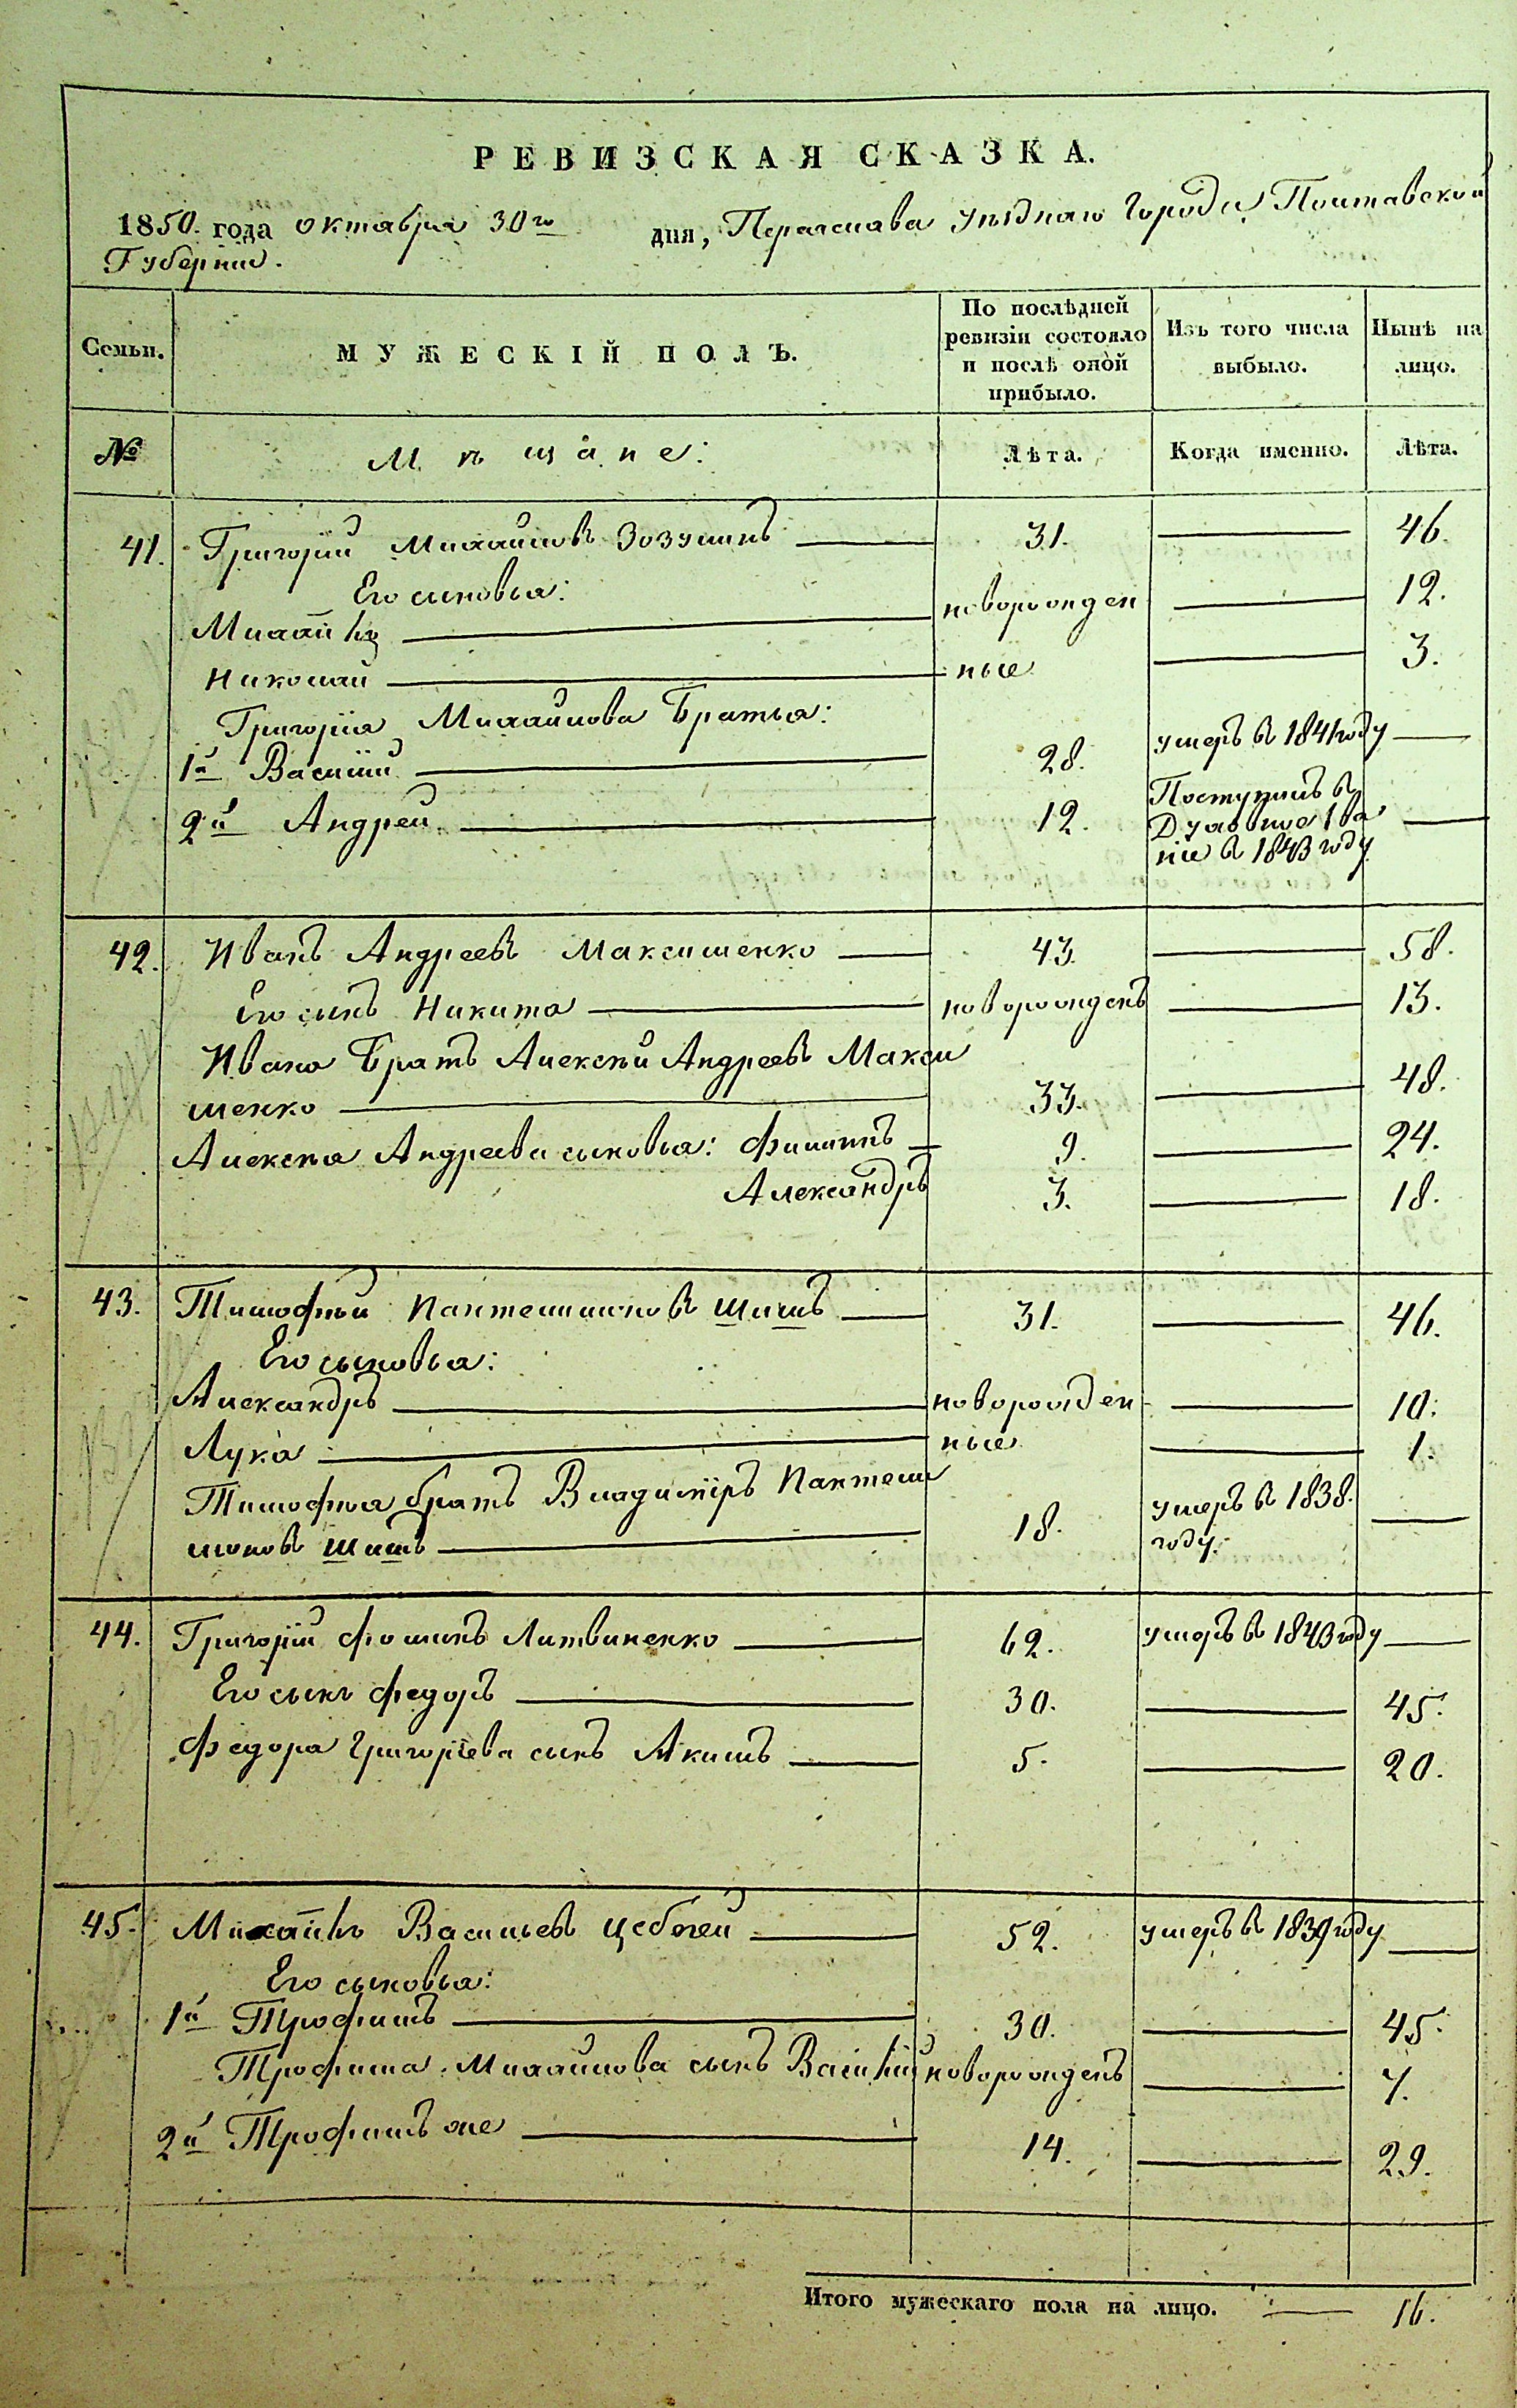 РЕВИЗСКАЯ СКАЗКА.
1850. года октабря 30го дня, Переяслава уѣзднаго Города Полтавской
Губерніи.
Семьи. МУЖЕСКІЙ ПОЛЪ. По послѣдней ревизіи состояло и послѣ оной прибыло. Изъ того числа выбыло. Нынѣ на лицо.
№ Мѣщане: Лѣта. Когда именно. Лѣта.
41. Григорій Михайловъ Зозулинъ 31. 46.
Его сыновья:
Михайло новорожден 12.
Николай ные 3.
Григорія Михайлова Братья:
1й Василій 28. умеръ в 1841 году
2й Андрей 12. Поступилъ в Духовное зва ніе в 1843 году
42. Иванъ Андреевъ Максименко 43. 58.
Его сынъ Никита новорожденъ 13.
Ивана Братъ Алексѣй Андреевъ Макси
менко 33. 48.
Алексѣя Андреева сыновья: Филиппъ 9. 24.
Александръ 3. 18.
43. Тимофѣй Пантелимоновъ Шишъ 31. 46.
Его сыновья:
Александръ новорожден 10.
Лука ные 1.
Тимофѣя братъ Владиміръ Пантели
моновъ Шишъ 18. умеръ в 1838. году.
44. Григорій Фоминъ Литвиненко 62. умеръ в 1843 году
Его сынъ Федоръ 30. 45.
Федора Григоріева сынъ Акимъ 5. 20.
45. Михайло Васильевъ 52. умеръ в 1839 году
Его сыновья:
1й Трофимъ 30. 45.
Трофима Михайлова сынъ Василій новорожденъ 7.
2й Трофимъ же 14. 29.
Итого мужескаго пола на лицо. 16.